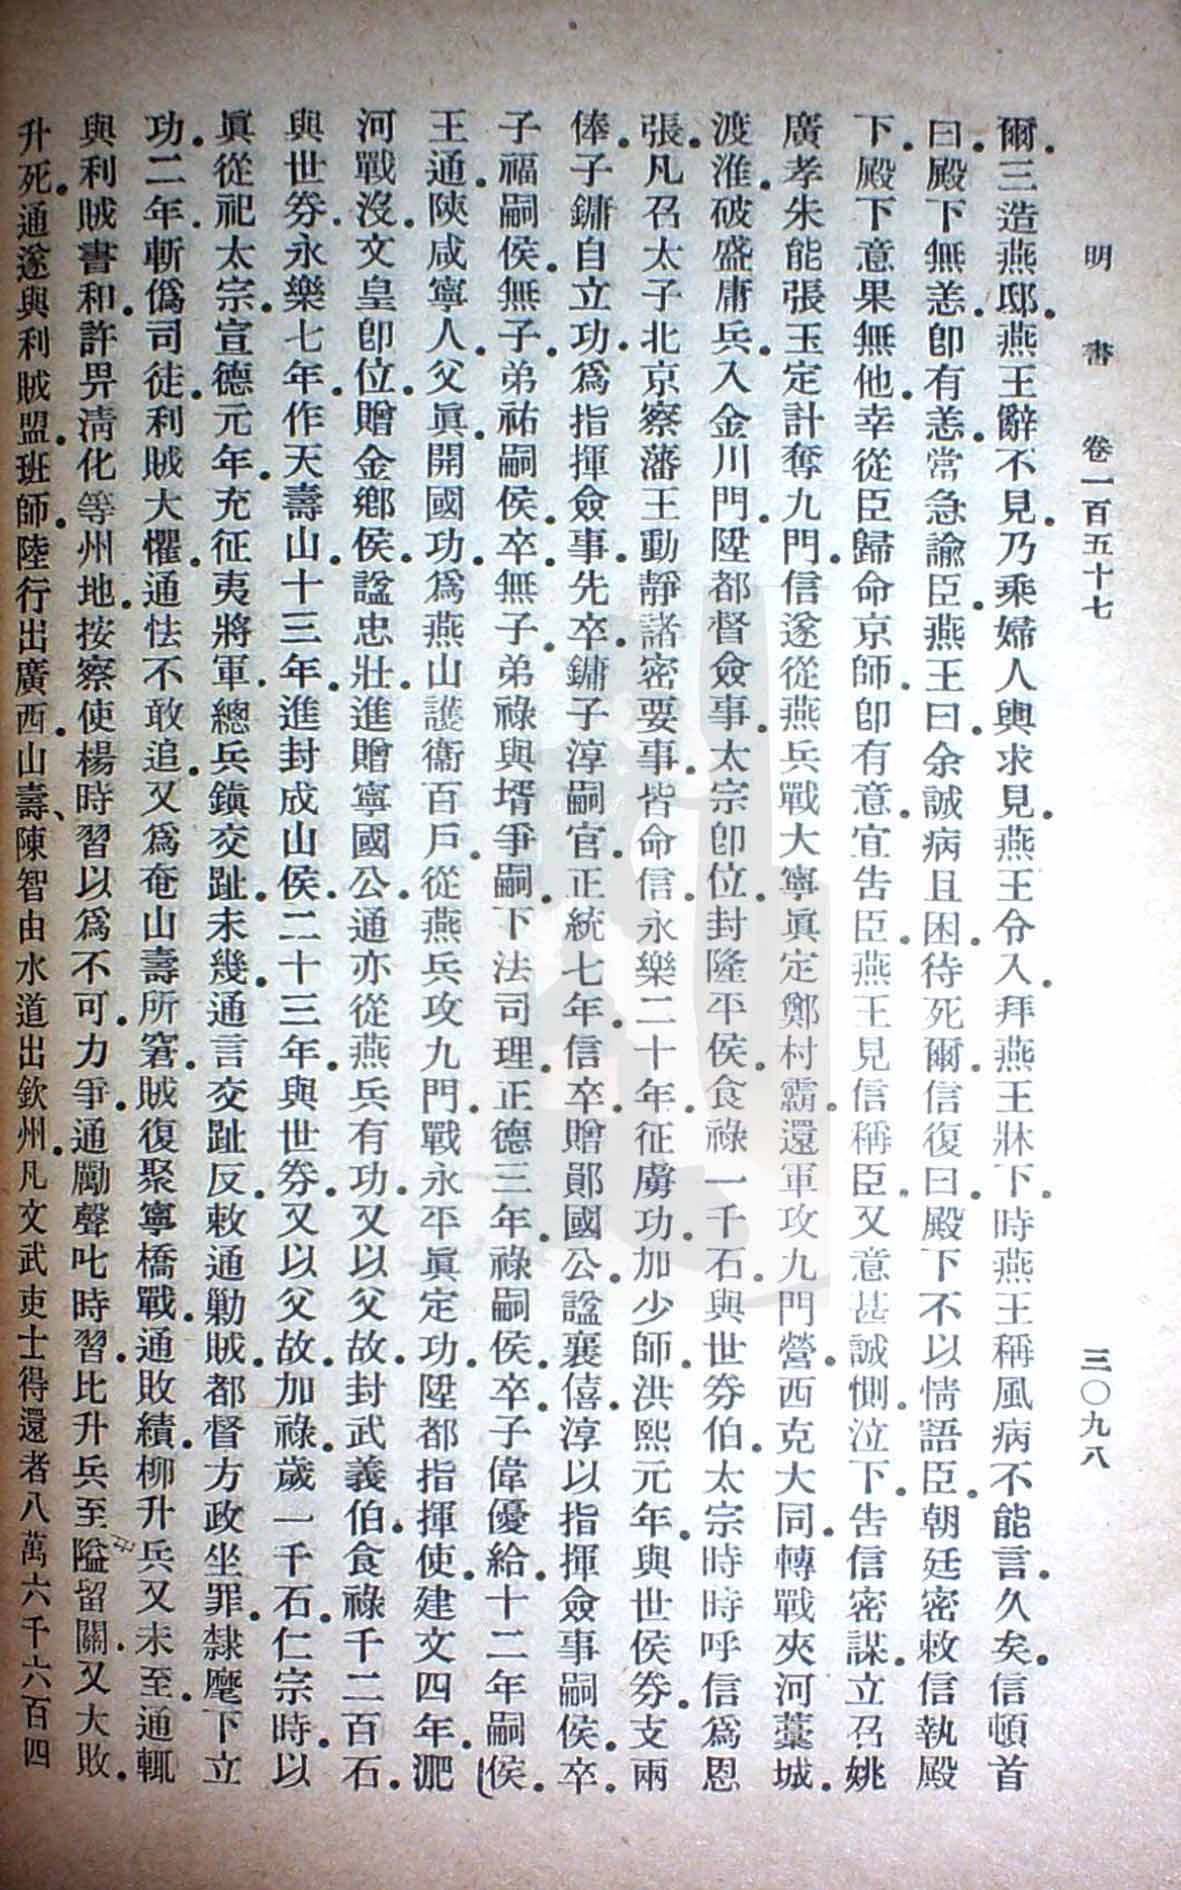 明書 卷一百五十七 三〇九八
爾。三造燕邸。燕王辭不見。乃乘婦人輿求見。燕王令入。拜燕王牀下。時燕王稱風病不能言。久矣。信頓首
曰。殿下無恙。卽有恙。當急諭臣。燕王曰。余誠病且困。待死爾。信復曰。殿下不以情語臣。朝廷密敕信執殿
下。殿下意果無他。幸從臣歸命京師。卽有意。宜告臣。燕王見信稱臣。又意甚誠惻。泣下。告信密謀。立召姚
廣孝朱能張玉定計奪九門。信遂從燕兵戰大寧眞定鄭村霸。還軍攻九門營。西克大同。轉戰夾河藁城。
渡淮。破盛庸兵。入金川門。陞都督僉事。太宗卽位。封隆平侯。食祿一千石。與世券伯。太宗時時呼信爲恩
張。凡召太子北京察藩王動靜諸密要事。皆命信。永樂二十年。征虜功。加少師。洪熙元年。與世侯券。支兩
俸。子鏞自立功。爲指揮僉事。先卒。鏞子淳嗣官。正統七年。信卒。贈鄖國公。諡襄僖。淳以指揮僉事嗣侯。卒。
子福嗣侯。無子。弟祐嗣侯。卒。無子。弟祿與壻爭嗣。下法司理。正德三年。祿嗣侯。卒。子偉優給。十二年嗣侯。
王通。陝咸寧人。父眞。開國功。爲燕山護衞百戶。從燕兵攻九門。戰永平眞定功。陞都指揮使。建文四年。淝
河戰沒。文皇卽位。贈金鄕侯。諡忠壯。進贈寧國公。通亦從燕兵有功。又以父故。封武義伯。食祿千二百石。
與世券。永樂七年。作天壽山。十三年。進封成山侯。二十三年。與世券。又以父故。加祿。歲一千石。仁宗時。以
眞從祀太宗。宣德元年。充征夷將軍。總兵鎭交趾。未幾。通言交趾反。敕通勦賊。都督方政坐罪。隸麾下立
功。二年。斬僞司徒。利賊大懼。通怯不敢追。又爲奄山壽所窘。賊復聚寧橋戰。通敗績。柳升兵又未至。通輒
與利賊書和。許畀淸化等州地。按察使楊時習以爲不可。力爭。通勵聲叱時習。比升兵至隘留關。又大敗。
升死。通遂與利賊盟。班師。陸行出廣西。山壽、陳智由水道出欽州。凡文武吏士得還者八萬六千六百四